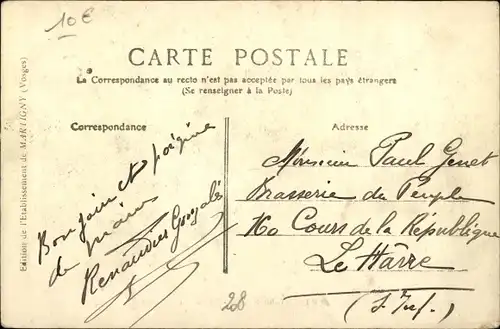 10€
CARTE POSTALE
La Correspondance au recto n'est pas acceptée par tous les pays étrangers
(Se renseigner à la Poste)
Edition de l'Etablissement de MARTIGNY (Vosges)
Correspondance
Bonjour et poignée
de mains
Renaudier
Adresse
Monsieur Paul Genet
Brasserie du Peuple
160 Cours de la République
Le Hâvre
(S. Inf.)
28